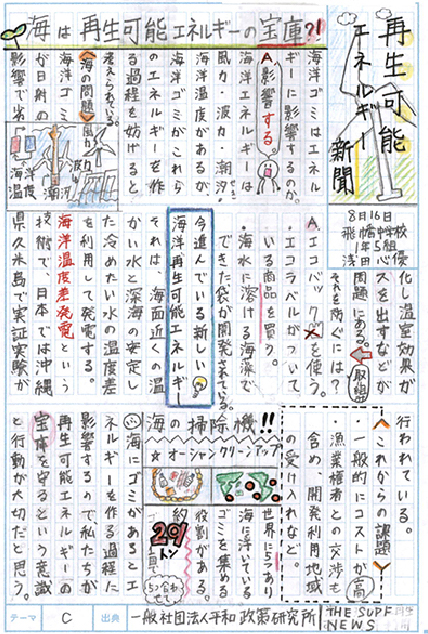 再生可能
エネルギー
新聞
8月16日
1年5組
海は再生可能エネルギーの宝庫?!
海洋ゴミはエネル
ギーに影響するのか。
A.影響する。
海洋エネルギーには
風力・波力・潮汐・
海洋温度があるが、
海洋ゴミがこれら
のエネルギーを作
る過程を妨げると
考えられている。
〈海の問題〉
海洋ゴミ
が日射の
影響で劣
風力
波力
潮汐
海洋温度
化し温室効果ガ
スを出すなどが
問題にある。
それを防ぐには?
A.エコバッグを使う。
・エコラベルがついて
いる商品を買う。
・海水に溶ける海藻で
できた袋が開発されている。
今進んでいる新しい
海洋再生可能エネルギー
それは、海面近くの温
かい水と深海の安定し
た冷めたい水の温度差
を利用して発電する。
海洋温度差発電という
技術で、日本では沖縄
県久米島で実証実験が
行われている。
〈これからの課題〉
・一般的にコストが高
・漁業権者との交渉も
含め、開発利用地域
の受け入れなど。
海の掃除機!!
☆オーシャンクリーンアップ
世界に5つあり
海に浮いている
ゴミを集める
役割がある。
約
29トン
海にゴミがあるとエ
ネルギーを作る過程に
影響するので私たちが
再生可能エネルギーの
宝庫を守るという意識
と行動が大切だと思う。
テーマ
C
出典
一般社団法人平和政策研究所
THE SURF NEWS